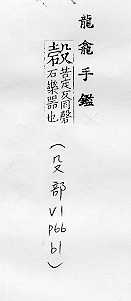 龍龕手鑑
苦定反同磬
石樂器也
(殳部
V1
p66
b1)